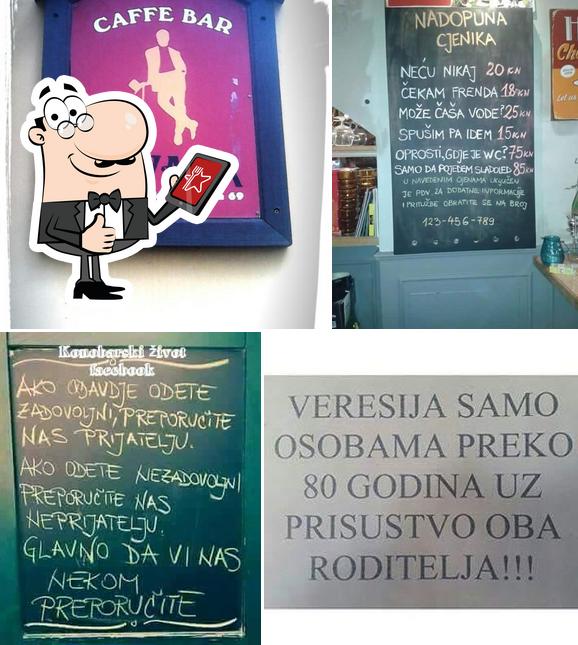 CAFFE BAR
69
NADOPUNA
CJENIKA
NEĆU NIKAJ 20 KN
ČEKAM FRENDA 18 KN
MOŽE ČAŠA VODE? 25 KN
SPUŠIM PA IDEM 15 KN
OPROSTI, GDJE JE WC? 75 KN
SAMO DA POJEDEM SLADOLED 85 KN
U NAVEDENIM CIJENAMA UKLJUČEN
JE PDV. ZA DODATNE INFORMACIJE
I PRITUŽBE OBRATITE SE NA BROJ
123-456-789
Konobarski život
facebook
AKO ODAVDJE ODETE
ZADOVOLJNI, PREPORUČITE
NAS PRIJATELJU.
AKO ODETE NEZADOVOLJNI
PREPORUČITE NAS
NEPRIJATELJU.
GLAVNO DA VI NAS
NEKOM
PREPORUČITE
VERESIJA SAMO
OSOBAMA PREKO
80 GODINA UZ
PRISUSTVO OBA
RODITELJA!!!